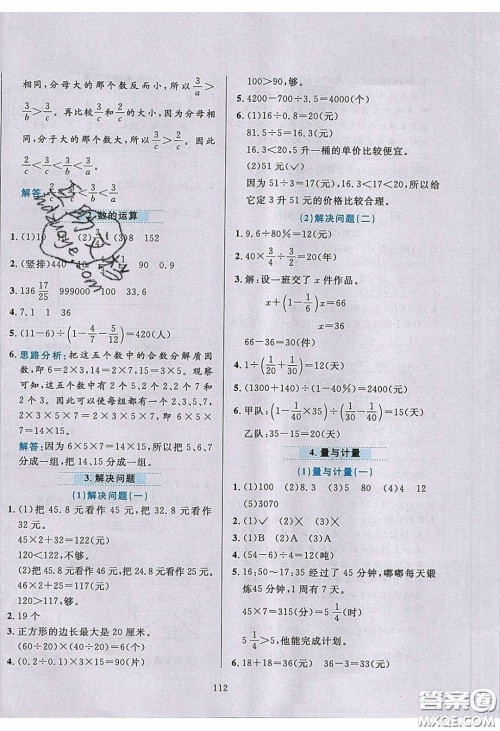 相同，分母大的那个数反而小，所以 3/a
＞3/b＞3/c。再比较 3/c 和 2/c 的大小，因为分母
相同，分子大的那个数大，所以 3/c＞2/c。因此
2/c＜3/c＜3/b＜3/a。
解答：2/c＜3/c＜3/b＜3/a
2. 数的运算
(3)8 152
2. (竖排)440 90 0.9
3. 136 17/25 999000 100 33.8
4. 7.1 1 36
5. (11－6)÷(1－4/7－5/12)＝420(人)
6. 思路分析：把这五个数中的合数分解质因
数，即 6＝2×3，14＝2×7，15＝3×5。观察
可知，这组数中有 2个5,2个2,2个7和
2个3，因此要保证每组都有一个
2×3×5×7，才能保证乘积相等，即 6×5×
7＝14×15。
解答：因为 6×5×7＝14×15，所以把5、6、7
分成一组，把 14、15 分成一组。
3. 解决问题
(1)解决问题(一)
1. (1)把 45.8 元看作 45 元，把 32.4 元看作
32 元。
45×2＋32＝122(元)
120＜122，不够。
(2)把 45.8 元看作 46 元，把 24.8 元看作 25
元。
46×2＋25＝117(元)
120＞117，够。
2. 19 个
3. 正方形的边长最大是 20 厘米。
(60÷20)×(40÷20)＝6(个)
4. (0.2÷0.1)×3×15＝90(片)
100＞90，够。
5. 4200－700÷3.5＝4000(个)
6. (1)16÷0.8＝20(元)
81.5÷5＝16.3(元)
16.3＜20，5升一桶的单价比较便宜。
(2)51元(√)
因为 51÷3＝17(元)，16.3＜17＜20，所以
给它定3升51元的价格比较合理。
(2)解决问题(二)
1. 9.6÷80%＝12(元)
2. 40×3/4÷(1－3/4)＝120(年)
3. 解：设一班交了 x 件作品。
x＋(1－1/6)x＝66
x＝36
66－36＝30(件)
4. 1÷(1/20＋1/30)＝12(天)
5. (1300＋140)÷(1－1/10)＝1600(元)
6. 甲队：(1－1/40×35)÷(1/35－1/40)＝35(天)
乙队：40－35＝5(天)
4. 量与计量
(1)量与计量(一)
1. (1)100 (2)8.3 (3)5 80 (4)4 12
(5)3070
2. (1)√ (2)× (3)×
3. (1)B (2)A (3)A
4. (54－6)÷4＝12(吨)
5. 16:50－17:35 经过了 45 分钟，嘟嘟每天锻
炼45分钟，1周有7天。
45×7＝315(分钟)＝5 1/4(小时)
5 1/4＞5，他能完成计划。
6. 18＋18＝36(元) 36－3＝33(元)
112
答案圈
MXQE.COM